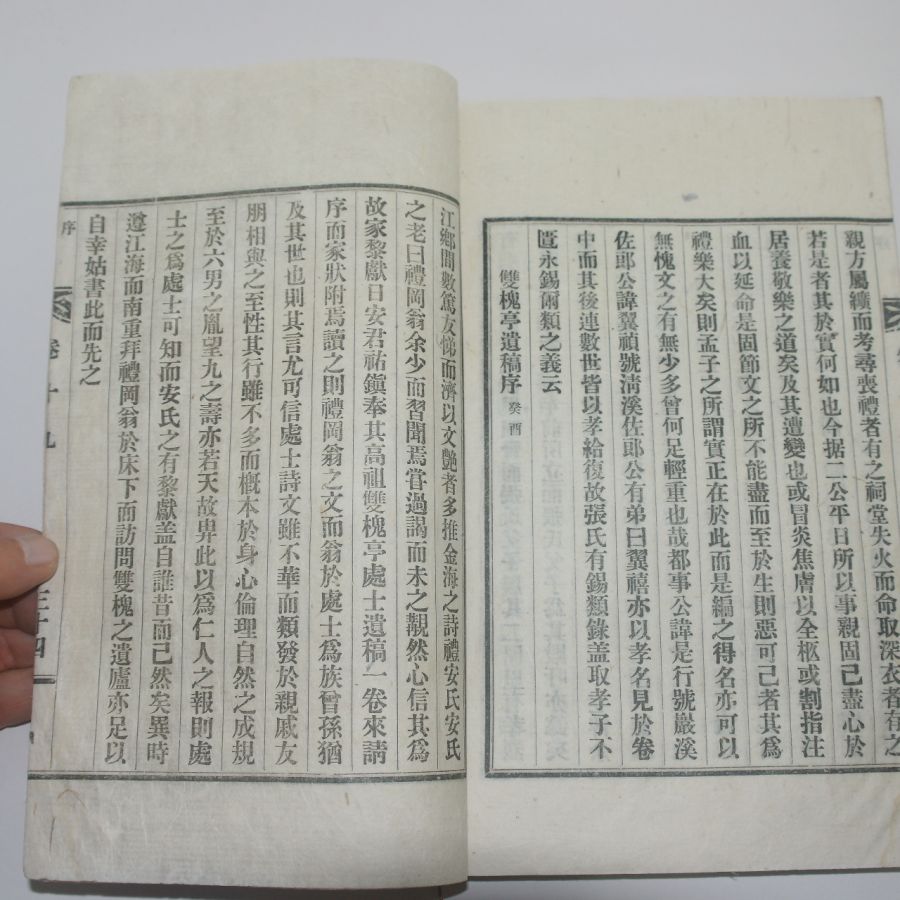 親方屬纊而考尋喪禮者有之祠堂失火而命取深衣者有之
若是者其於實何如也今据二公平日所以事親固己盡心於
居養敬樂之道矣及其遭變也或冒炎焦膚以全柩或割指注
血以延命是固節文之所不能盡而至於生則惡可己者其爲
禮樂大矣則孟子之所謂實正在於此而是編之得名亦可以
無愧文之有無少多曾何足輕重也哉都事公諱是行號巖溪
佐郎公諱翼禎號淸溪佐郎公有弟曰翼禧亦以孝名見於卷
中而其後連數世皆以孝給復故張氏有錫類錄盖取孝子不
匱永錫爾類之義云
雙槐亭遺稿序 癸酉
江鄉間數篤友悌而濟以文艶者多推金海之詩禮安氏安氏
之老曰禮岡翁余少而習聞焉甞過謁而未之覯然心信其爲
故家黎獻日安君祐鎭奉其高祖雙槐亭處士遺稿一卷來請
序而家狀附焉讀之則禮岡翁之文而翁於處士爲族曾孫猶
及其世也則其言尤可信處士詩文雖不華而類發於親戚友
朋相與之至性其行雖不多而槪本於身心倫理自然之成規
至於六男之胤望九之壽亦若天故畀此以爲仁人之報則處
士之爲處士可知而安氏之有黎獻盖自誰昔而己然矣異時
遵江海而南重拜禮岡翁於床下而訪問雙槐之遺廬亦足以
自幸姑書此而先之
序
卷十九
三十四